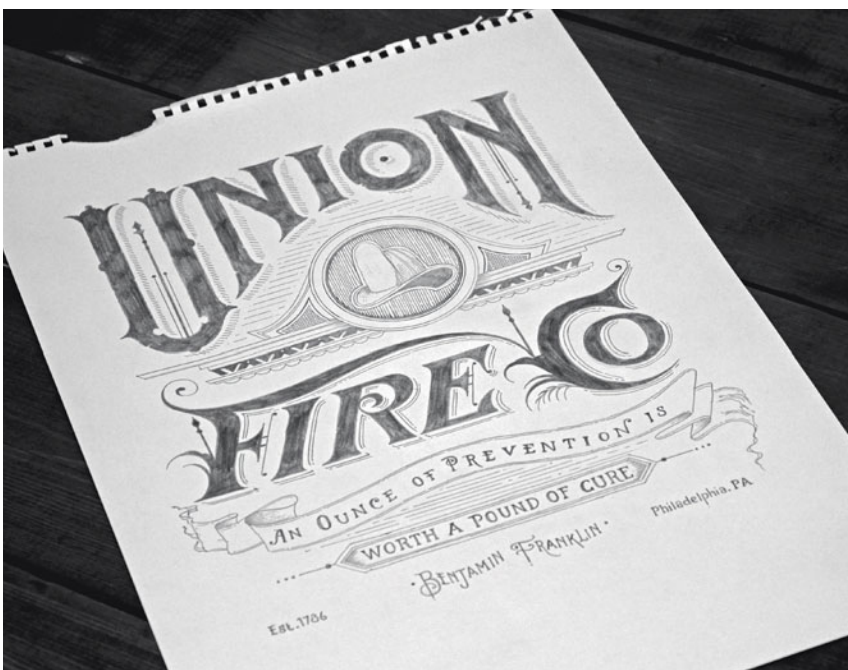 UNION
FIRE CO
AN OUNCE OF PREVENTION IS
WORTH A POUND OF CURE
BENJAMIN FRANKLIN
Philadelphia. PA
Est. 1736